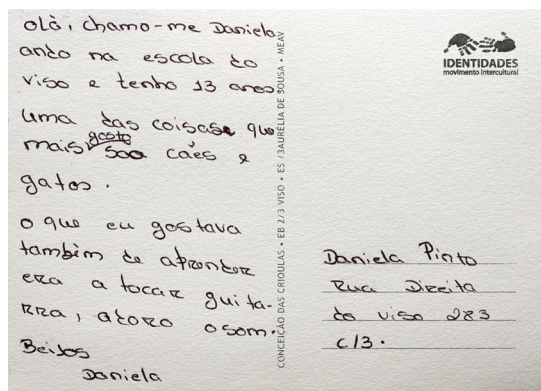 Olá, chamo-me Daniela,
ando na escola do
viso e tenho 13 anos
Uma das coisas que
mais gosto são cães e
gatos.
O que eu gostava
também de aprender
era a tocar guita-
rra, adoro o som.
Beijos
Daniela
CONCEIÇÃO DAS CRIOULAS • EB 2/3 VISO • ES /3AURÉLIA DE SOUSA • MEAV
IDENTIDADES
movimento intercultural
Daniela Pinto
Rua Direita
do viso 283
c/3.